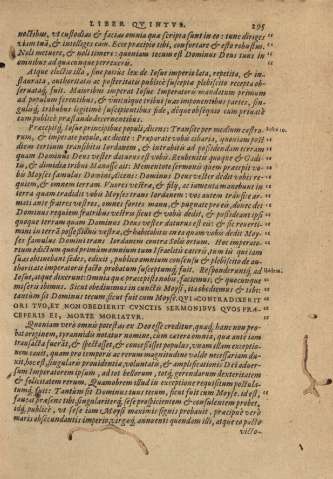 LIBER QVINTVS. 295
noctibus, vt custodias & facias omnia quæ scripta sunt in eo: tunc diriges
viam tuã, & intelliges eam. Ecce præcipio tibi, confortare & esto robustus.
Noli metuere, & noli timere: quoniam tecum est Dominus Deus tuus in
omnibus ad quæcunque perrexeris.
Atque electio illa, siue potius lex de Iosue imperio lata, repetita, & in-
staurata, authoritate ac potestate publicè suscepta plebiscito recepto ob-
seruataq́; fuit. Maioribus imperat Iosue Imperatorio mandatum primum
ad populum
gulosq́; tribubus legitimè suscipientibus fide, atque obsequio cum priuatè
tum publicè præstando decernentibus.
Præcepitq́; Iosue principibus populi, dicens: Transite per medium castro-
rum, & imperate populo, ac dicite: Præparate vobis cibaria, quoniam post
diem tertium transibitis Iordanem, & intrabitis ad possidendam terram
quam Dominus Deus vester daturus est vobis. Rubenitis quoque & Gadi-
tis, & dimidiæ tribui Manasse ait: Mementote sermonis quem præcepit vo-
bis Moyses famulus Domini, dicens: Dominus Deus vester dedit vobis re-
quiem, & omnem terram. Vxores vestræ, & filij, ac iumenta manebunt in
terra quam tradidit vobis Moyses trans Iordanem: vos autem transite ar-
mati ante fratres vestros, omnes fortes manu, & pugnate pro eis, donec det
Dominus requiem fratribus vestris sicut & vobis dedit, & possideant ipsi
quoque terram quam Dominus Deus vester daturus est eis: & sic reuerte-
mini in terrã possessionis vestræ, & habitabitis in ea quam vobis dedit Moy-
ses famulus Domini trans Iordanem contra Solis ortum. Hoc imperato-
rium edictum quod primùm omnium tum Israëlitis eæteris, tum iis qui iam
suas obtinebant sedes, edixit, publico omnium consensu & plebiscito de au-
thoritate imperatoris facto probatum susceptumq́; fuit. Responderuntq́; ad
Iosue, atque dixerunt: Omnia quæ præcepisti nobis, faciemus: & quocunque
miseris ibimus. Sicut obediuimus in cunctis Moysi, ita obediemus & tibi:
tantùm sit Dominus tecum sicut fuit cum Moyse. QVI CONTRADIXERIT
ORI TVO, ET NON OBEDIERIT CVNCTIS SERMONIBVS QVOS PRÆ-
CEPERIS EI, MORTE MORIATVR.
Quoniam verò omnis potestas ex Deo esse creditur, quæq́; hanc non pro-
bat originem, tyrannidis notatur nomine, cum cætera omnia, quæ antè iam
transacta fuerãt, & spectasset, & concessisset populus, vnam illam exceptio-
nem cauit, quam pro temporis ac rerum magnitudine valdè necessariam du-
xit, hoc est, singularis prouidentiæ, voluntatis, & amplificationis Dei ador-
sum Imperatorem ipsum, ad tot bellorum, totq́; gerendarum dexteritatem
& felicitatem rerum. Quamobrem illud in exceptione requisitum postula-
tumq́; fuit: Tantùm sit Dominus tuus tecum, sicut fuit cum Moyse. id est,
fauens præsens tibi, singulariterq́; se se prospicientem & consulentem probet,
idq́; publicè, vt se se iam Moysi maximis signis probauit, præcipuè verò
maris obsecundantis imperio, virgæq́; annutui quendam illi, atque eo postò
victo-